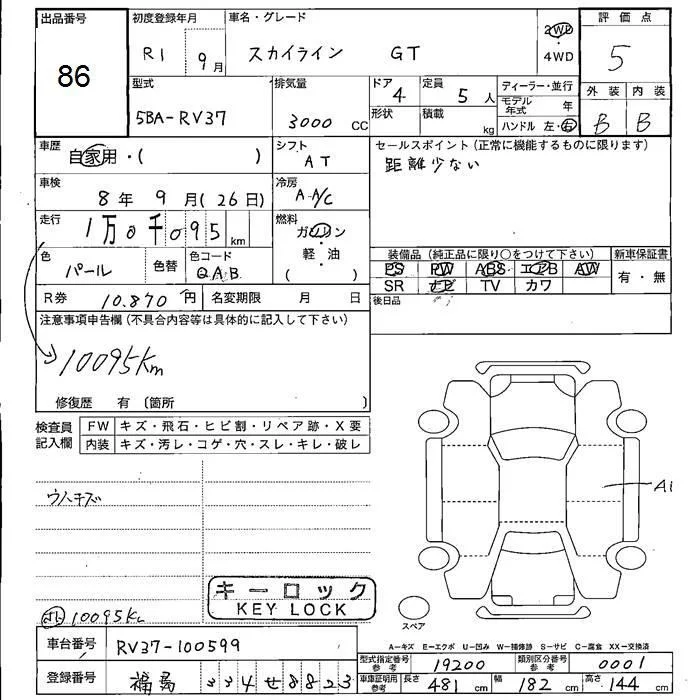 出品番号 初度登録年月 車名・グレード 評価点
86 R1 9月 スカイライン GT 2WD・4WD 5
型式 排気量 ドア 定員 ディーラー・並行 外装 内装
5BA-RV37 3000 CC 4 5人 モデル年式 年 B B
形状 積載 kg ハンドル 左・右
車歴 自家用・( ) シフト AT セールスポイント(正常に機能するものに限ります)
距離少ない
車検 8年 9月(26日) 冷房 A A/C
走行 1万0千095km 燃料 ガソリン・軽・油 ( )
色 パール 色替 色コード QAB 装備品(純正品に限り○をつけて下さい) 新車保証書
PS PW ABS エアB AW 有・無
SR ナビ TV カワ
R券 10.870円 名変期限 月 日 後日品
注意事項申告欄(不具合内容等は具体的に記入して下さい)
10095Km
修復歴 有 〔箇所 〕
検査員記入欄 FW キズ・飛石・ヒビ割・リペア跡・X要
内装 キズ・汚レ・コゲ・穴・スレ・キレ・破レ
A1
ウハキズ
キーロック
KEY LOCK
10095K
スペア
A-キズ E-エクボ U-凹み W-補修跡 S-サビ C-腐食 XX-交換済
車台番号 RV37-100599 型式指定番号 参考 19200 類別区分番号 参考 0001
登録番号 福島 334せ8823 車庫証明用 参考 長さ 481cm 幅 182cm 高さ 144cm